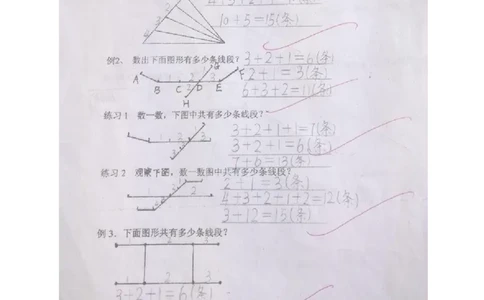 4+3+2+1
10+5=15(条)
例2、数出下面图形有多少条线段? 3+2+1=6(条)
A B C D E F G H 1 2 3
2+1=3(条)
6+3+2=11(条)
练习1 数一数,下图中共有多少条线段?
3+2+1+1=7(条)
3+2+1=6(条)
7+6=13(条)
练习2 观察下面,数一数图中共有多少条线段?
2+1=3(条)
4+3+2+1+2=12(条)
3+12=15(条)
例3、下面图形共有多少条线段?
1 2 3
1 2 3
3+2+1=6(条)